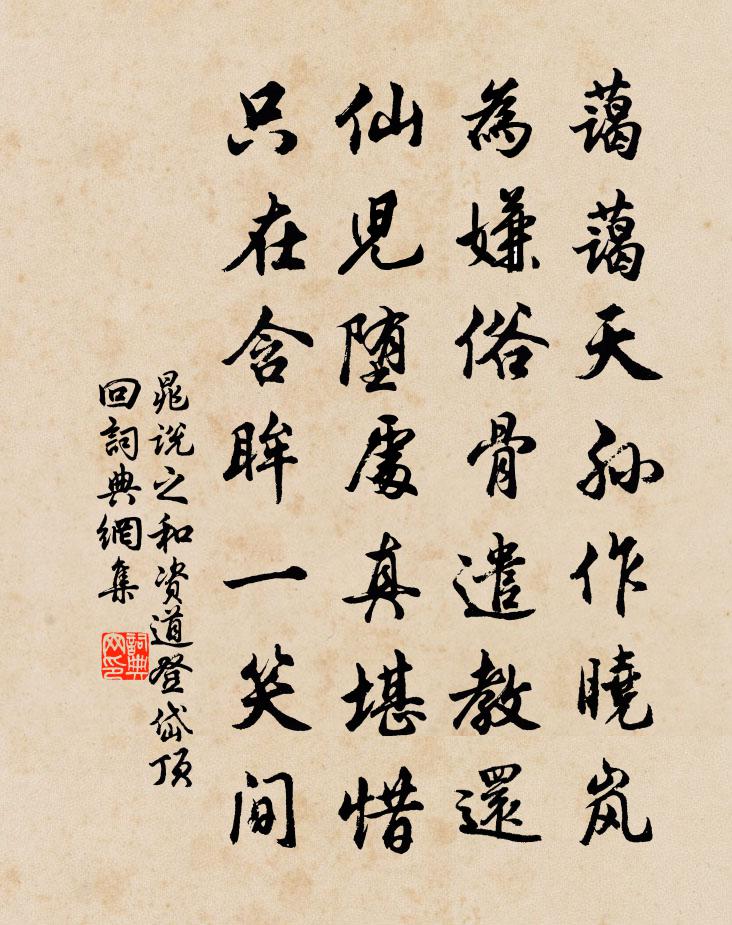 藹藹天孙作曉岚
為嫌俗骨遣教還
仙児堕處真堪惜
只在含眸一笑间
晁说之和资道登岱顶
回詞典網集
詞典网印